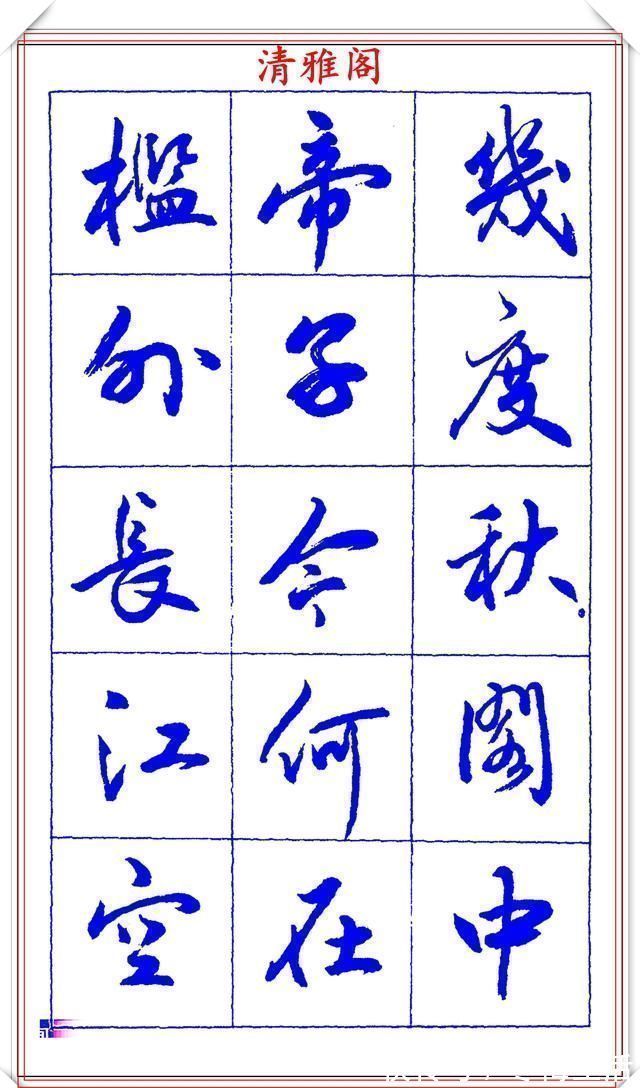 清雅阁
幾度秋閣中
帝子今何在
檻外長江空